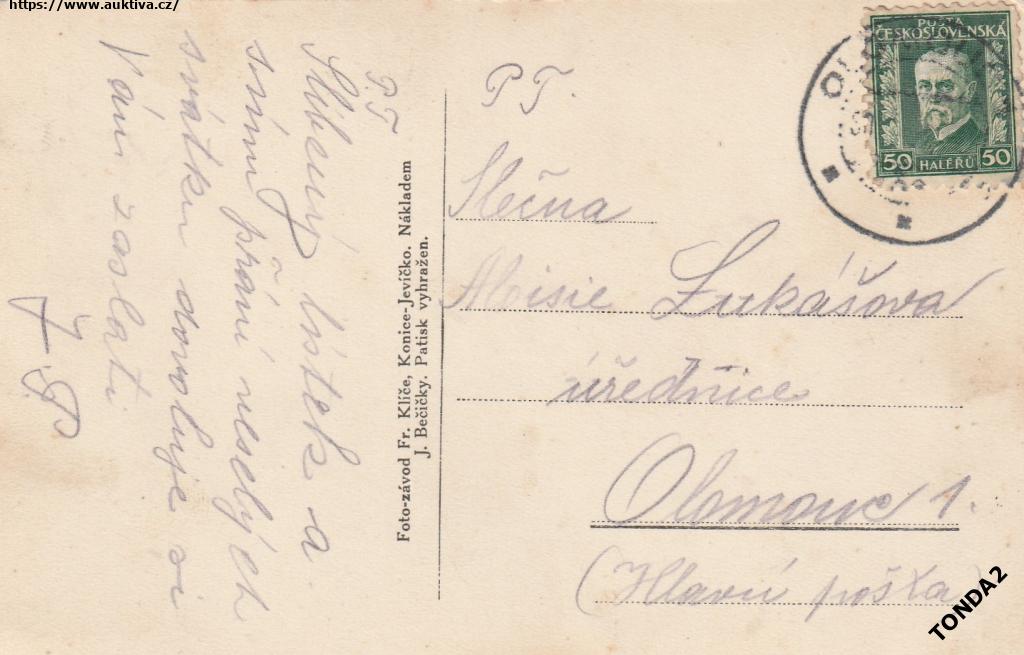 https://www.auktiva.cz/
P.T.
Slíbený lístek a
s ním přání veselých
svátků dovoluje si
Vám zaslati
Foto-závod Fr. Klíče, Konice-Jevíčko. Nákladem
J. Bečičky. Patisk vyhražen.
P.T.
Slečna
Aloisie Lukášova
úřednice
Olomouc 1.
(Hlavní pošta)
POŠTA
ČESKOSLOVENSKÁ
50 HALÉŘŮ 50
TONDA2